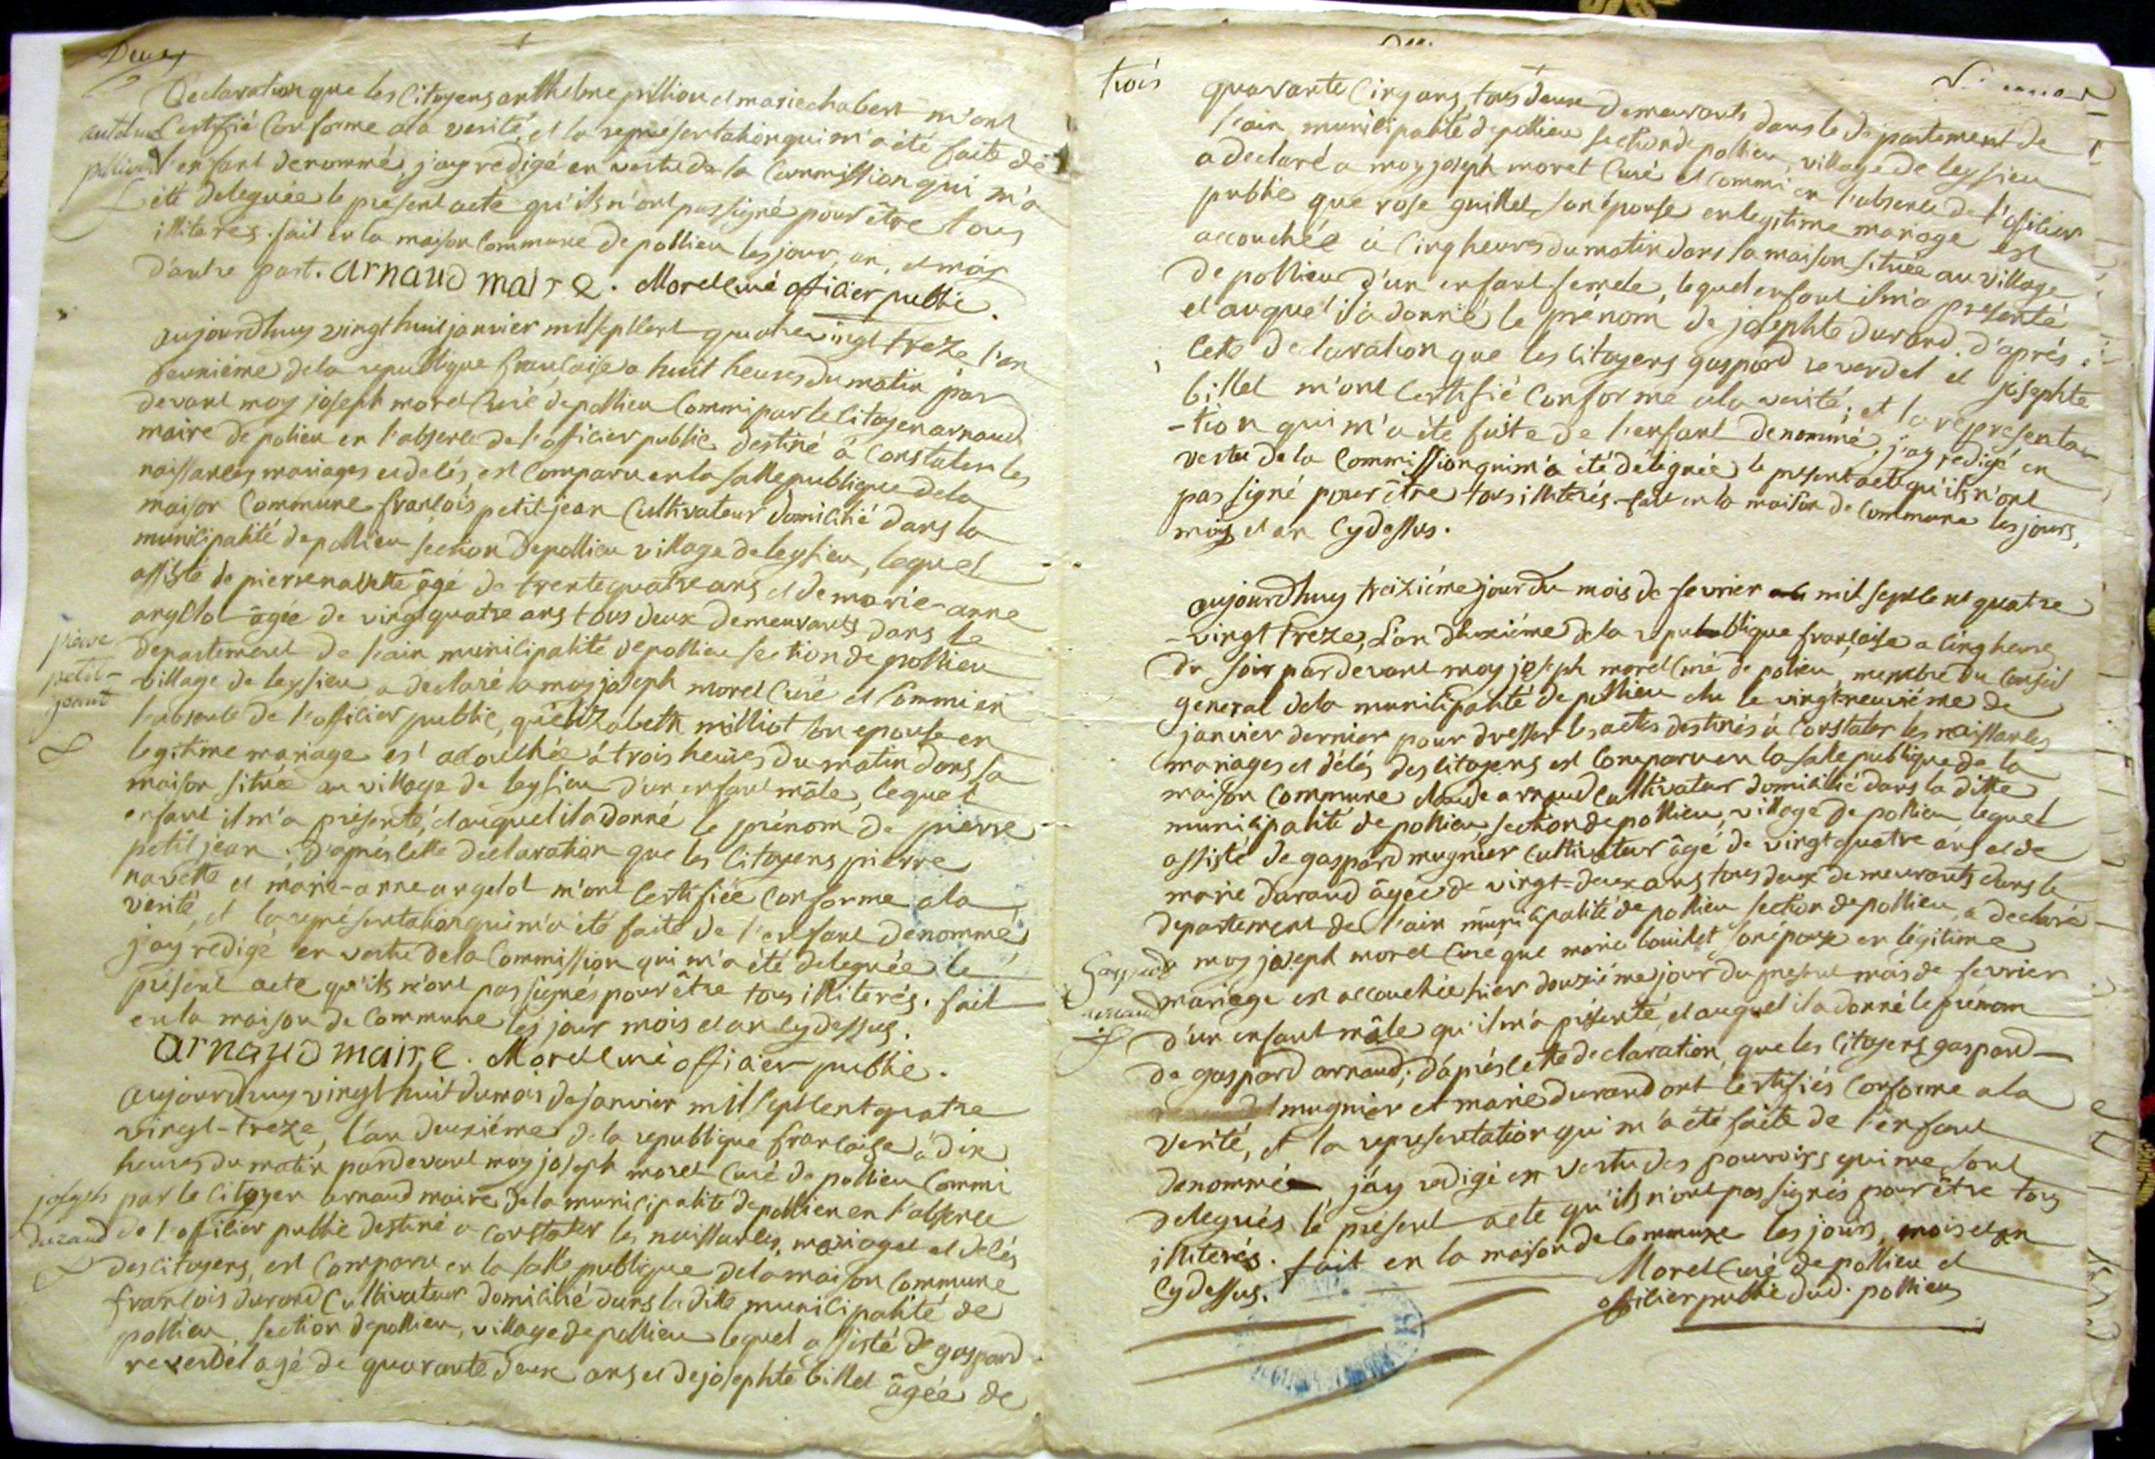 Deux
Declaration que les Citoyens anthelme pillion et marie chabert m'ont
Certifié Conforme a la verité, et la representation qui m'a été faite de
l'enfant denommé, j'ay redigé en vertu de la Commission qui m'a
été deleguée le présent acte qu'ils n'ont pas signé pour être tous
illiterés. fait en la maison Commune de pollieu les jour, an, et mois
d'autre part. arnaud maire. Morel curé officier public.
aujourdhuy vingt huit janvier mil sept Cent quatre vingt treze l'an
deuxiéme de la republique francaise a huit heures du matin par
devant moy joseph morel Curé de pollieu Commi par le Citoyen arnaud
maire de polieu en l'absence de l'officier public destiné à Constater les
naissances mariages et delés, est Comparu en la salle publique de la
maison Commune francois petit jean Cultivateur domicilié dans la
municipalité de pollieu section de pollieu village de leysieu, lequel
assisté de pierre navette âgé de trente quatre ans et de marie-anne
argelot âgée de vingt quatre ans tous deux demeurants dans le
departement de l'ain municipalité de pollieu section de pollieu
village de leysieu a declaré a moy joseph morel Curé et Commi en
l'absente de l'officier public, qu'elizabeth milliot son epouse en
legitime mariage est acouchée à trois heures du matin dans sa
maison située au village de leysieu d'un enfant mâle, lequel
enfant il m'a présenté, et auquel il a donné le prénom de pierre
petit jean; d'après cette declaration que les Citoyens pierre
navette et marie-anne argelot m'ont Certifiée Conforme a la
verité, et la représentation qui m'a été faite de l'enfant denommé,
j'ay redigé en vertu de la Commission qui m'a été deleguée le
présent acte qu'ils n'ont pas signés pour être tous illiterés. fait
en la maison de Commune les jour mois et an cy dessus.
arnaud maire. Morel curé officier public.
aujourdhuy vingt huit du mois de janvier mil sept Cent quatre
vingt-treze, l'an deuxiéme de la republique francaise à dix
heures du matin pardevant moy joseph morel Curé de pollieu Commi
par le Citoyen arnaud maire de la municipalité de pollieu en l'absence
de l'officier public destiné a Constater les naissances, mariages et delés
des Citoyens, est Comparu en la salle publique de la maison Commune
francois durand Cultivateur domicilié dans la ditte municipalité de
pollieu, section de pollieu, village de pollieu lequel assisté de gaspard
reverdel agé de quarante deux ans et de josephte billet âgée de
pierre
petit-
jean
josephte
durand
trois
quarante Cinq ans, tous deux demeurants dans le departement de
l'ain, municipalité de pollieu section de pollieu, village de leysieu
a declaré a moy joseph morel Curé et Commi en l'absence de l'officier
public que rose guillet son épouse en legitime mariage est
accouchée à Cinq heures du matin dans sa maison située au village
de pollieu d'un enfant femele, lequel enfant il m'a presenté
et auquel il a donné le prénom de josephte durand. d'aprés
Cette declaration que les Citoyens gaspard reverdel et josephte
billet m'ont Certifié Conforme a la verité; et la representa
-tion qui m'a été faite de l'enfant denommé, j'ay redigé en
vertu de la Commission qui m'a été déléguée le présent acte qu'ils n'ont
pas signé pour être tous illiterés. fait en la maison de Commune les jours,
mois et an Cy dessus.
aujourdhuy treiziéme jour du mois de fevrier mil sept Cent quatre
-vingt treze, l'an deuxiéme de la republique francaise a Cinq heure
du soir pardevant moy joseph morel Curé de polieu, membre du Conseil
general de la municipalité de pollieu elu le vingt-neuviéme de
janvier dernier pour dresser les actes destinés à Constater les naissances
mariages et délés des Citoyens est Comparu en la salle publique de la
maison Commune claude arnaud Cultivateur domicilié dans la ditte
municipalité de pollieu, section de pollieu, village de pollieu lequel
assisté de gaspard mugnier Cultivateur âgé de vingt quatre ans et de
marie durand âgée de vingt-deux ans, tous deux demeurants dans le
departement de l'ain municipalité de pollieu section de pollieu, a declaré
a moy joseph morel Curé que marie son épouse en légitime
mariage est accouchée hier douziéme jour du présent mois de fevrier
d'un enfant mâle qu'il m'a présenté, et auquel il a donné le prénom
de gaspard arnaud; d'après cette declaration, que les Citoyens gaspard
mugnier et marie durand ont Certifiés Conforme a la
verité, et la representation qui m'a été faite de l'enfant
denommé, j'ay redigé en vertu des pouvoirs qui me sont
delegués le présent acte qu'ils n'ont pas signés pour être tous
illiterés. fait en la maison de Commune les jours, mois et an
Cy dessus.
Morel Curé de pollieu et
officier public dud. pollieu
Gaspard
arnaud